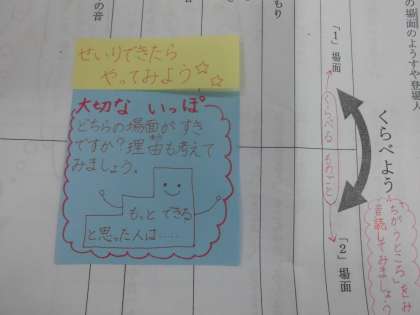 の場面のようすや登場人
くらべよう
「1」場面
くらべる
「2」場面
ちがうところをみ
音読してみましょう
もり
の音
せいりできたら
やってみよう☆☆
大切な いっぽ
どちらの場面がすき
ですか?理由も考えて
みましょう。
もっと できる
と思った人は……